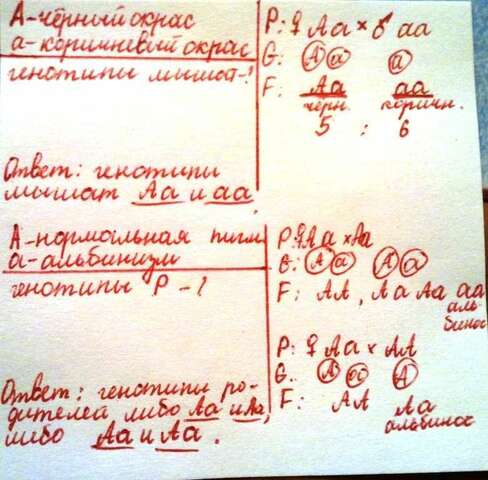 А-чёрный окрас
а-коричневый окрас
генотипы мышат-?
Ответ: генотипы
мышат Аа и аа
Р: ♀ Аа × ♂ аа
G: А а а
F: Аа аа
чёрн. коричн.
5 : 6
А-нормальная пигм
а-альбинизм
генотипы Р-?
Ответ: генотипы ро-
дителей либо Аа и Аа,
либо Аа и Аа.
Р: ♀ Аа × Аа
G: А а А а
F: АА, Аа Аа аа
аль-
бинос
Р: ♀ Аа × АА
G: А а А
F: АА Аа
альбинос